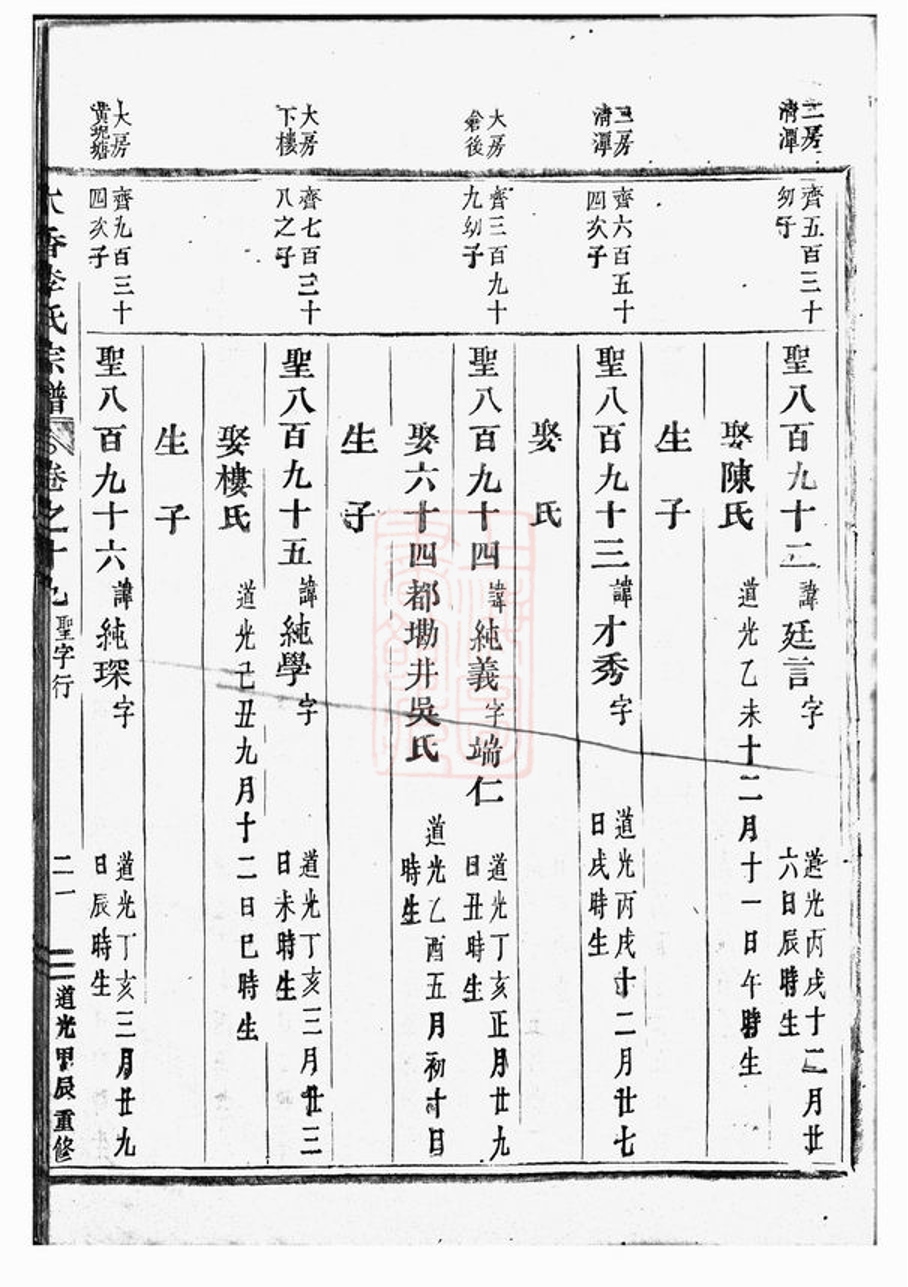 三房
清潭
齊五百三十
幼子
聖八百九十二諱廷言字
道光丙戌十二月廿
六日辰時生
娶陳氏
道光乙未十二月十一日午時生
生子
三房
清潭
齊六百五十
四次子
聖八百九十三諱才秀字
道光丙戌十二月廿七
日戌時生
娶氏
大房
倉後
齊三百九十
九幼子
聖八百九十四諱純義字端仁
道光丁亥正月廿九
日丑時生
娶六十四都坳井吳氏
道光乙酉五月初十日
時生
生子
大房
下樓
齊七百三十
八之子
聖八百九十五諱純學字
道光丁亥三月廿三
日未時生
娶樓氏
道光己丑九月十二日巳時生
生子
大房
黃塘
齊九百三十
四次子
聖八百九十六諱純琛字
道光丁亥三月廿九
日辰時生
李氏宗譜
卷之十九
聖字行
二一
道光甲辰重修